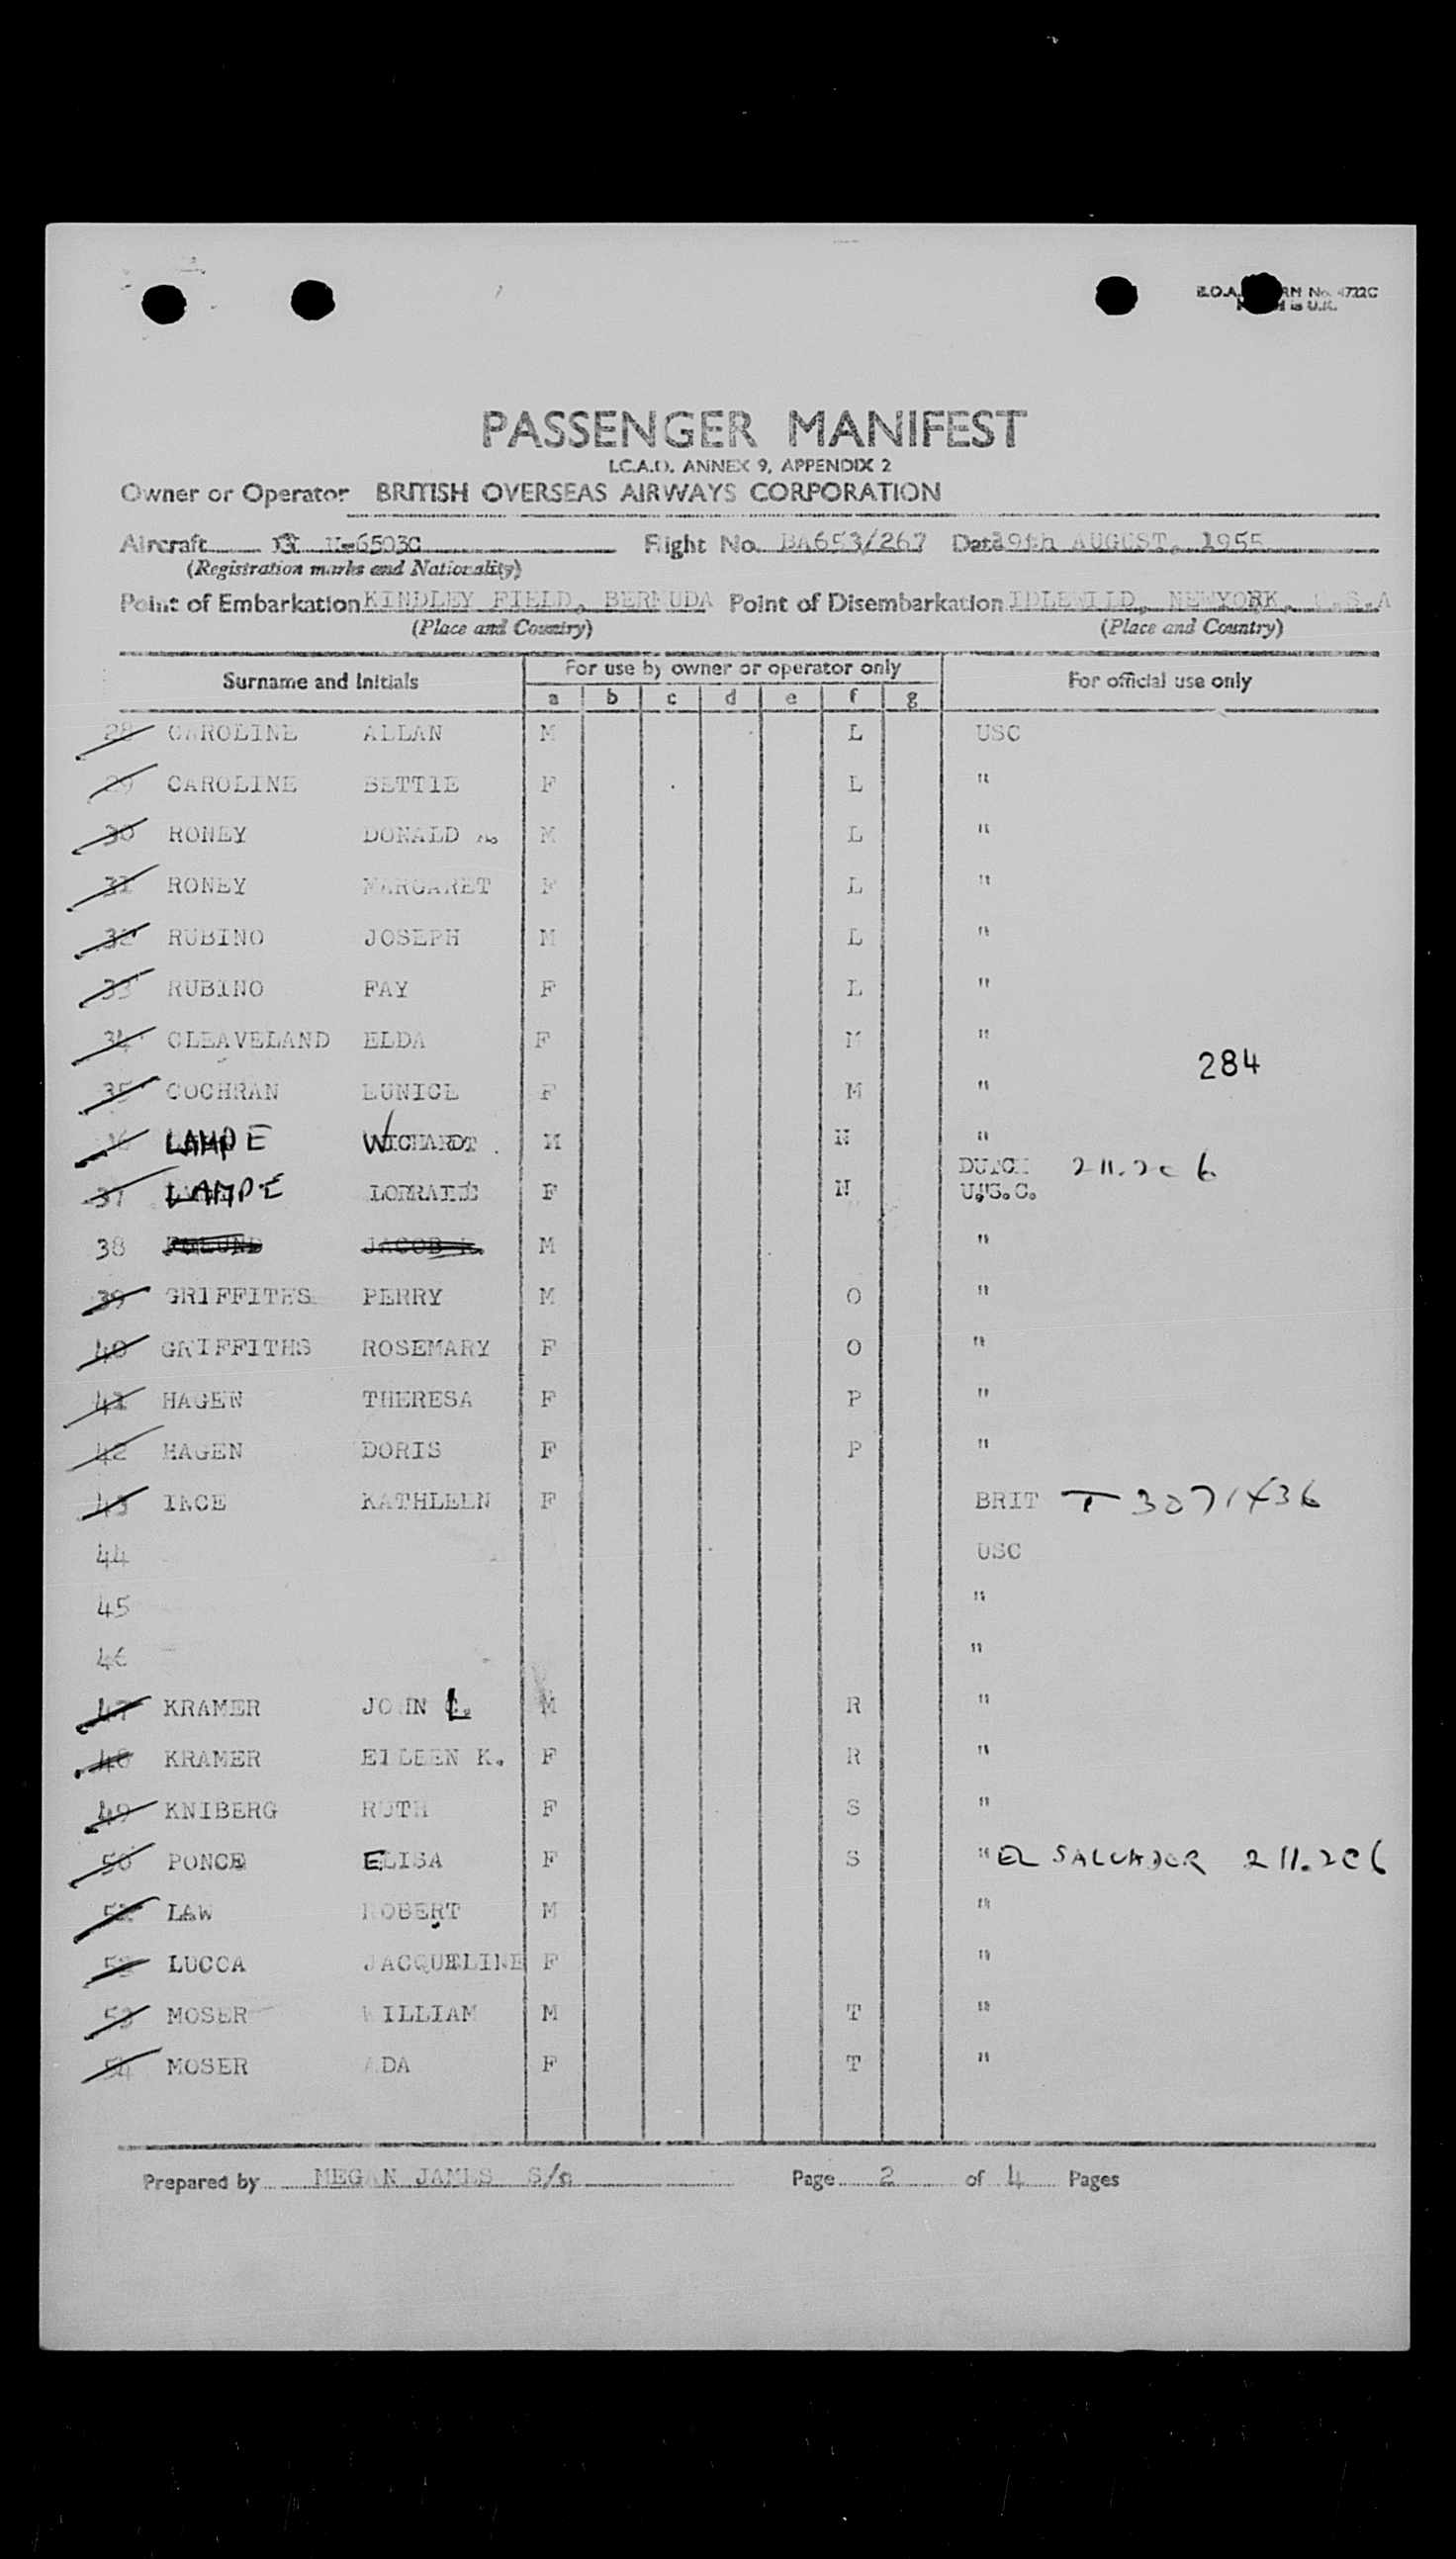 PASSENGER MANIFEST
I.C.A.O. ANNEX 9, APPENDIX 2
Owner or Operator BRITISH OVERSEAS AIRWAYS CORPORATION
Aircraft Flight No. BA653/267 Date AUGUST, 1955
(Registration marks and Nationality)
Point of Embarkation KINDLEY FIELD, BERMUDA Point of Disembarkation IDLEWILD, NEWYORK, U.S.A
(Place and Country) (Place and Country)
Surname and Initials For use by owner or operator only For official use only
a b c d e f g
28 CAROLINE ALLAN M L USC
29 CAROLINE BETTIE F L "
30 RONEY DONALD A. M L "
31 RONEY MARGARET F L "
32 RUBINO JOSEPH M L "
33 RUBINO FAY F L "
34 CLEAVELAND ELDA F M "
284
35 COCHRAN EUNICE F M "
36 LAMPE M N "
DUTCH 211.2c6
37 LAMPE LORRAINE F N U.S.C.
38 JACOB M "
39 GRIFFITHS PERRY M O "
40 GRIFFITHS ROSEMARY F O "
41 HAGEN THERESA F P "
42 HAGEN DORIS F P "
43 INCE KATHLEEN F BRIT T 3071436
44 USC
45 "
46 "
47 KRAMER JOHN L. M R "
48 KRAMER EILEEN K. F R "
49 KNIBERG RUTH F S "
50 PONCE ELISA F S " EL SALVADOR 211.2c6
51 LAW ROBERT M "
52 LUCCA JACQUELINE F "
53 MOSER WILLIAM M T "
54 MOSER ADA F T "
Prepared by MEGAN JAMES S/s Page 2 of 4 Pages